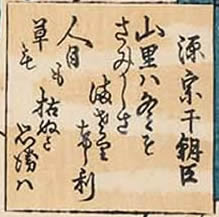 源宗于朝臣
山里ハ冬そ
さみしさ
まさりける
人目も
草も
枯ぬと
思へハ